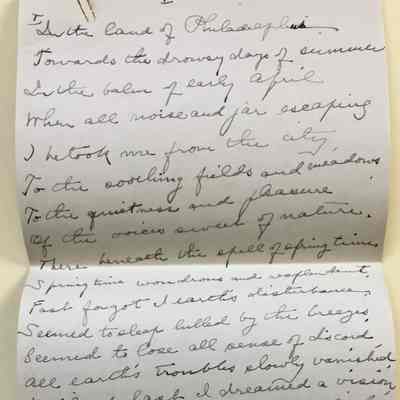 I
In the land of Philadelphia
Towards the drowsy days of summer
In the balm of early April
When all noise and jar escaping
I betook me from the city
To the soothing fields and meadows
To the quietness and pleasure
Of the voices sweet of nature.
There beneath the spell of spring time
Springtime wondrous and resplendent.
Fast forgot I earth's disturbance.
Seemed to sleep lulled by the breezes
Seemed to lose all sense of discord
All earth's troubles slowly vanished
last I dreamed a vision